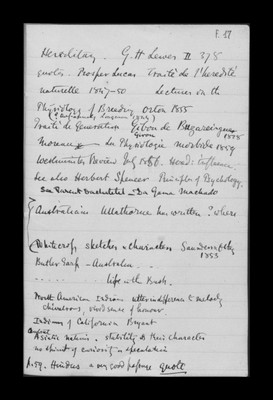 F. 17
Hereditary. G. H Lewes II 378
quotes. Prosper Lucas Traité de l'heredité
naturelle 1847-50 Lectures on the
Physiology of Breeding Orton 1855
Traité de Generation Girou de Buzareingues
Girou 1828
Moreau La Physiologie morbide 1859
Westminster Review July 1856. Hered: Influence
see also Herbert Spencer Principles of Psychology.
Australians Ullathorne has written ? where
Whitcroft sketches characters Saunders & Otley
1853
Butler Earp - Australia
life with Bush
North American Indians utter indifference to melody
chivalrous, vivid sense of honour
Indians of California Bryant
Asiatic nations. stability of their character
no spirit of curiosity or speculation
p. 59. Hindus a very good passage quote